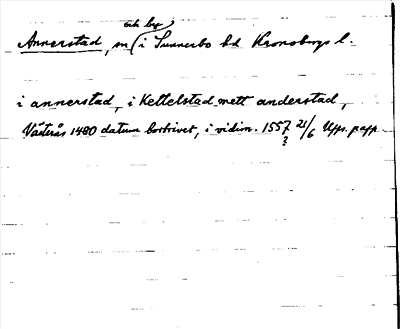 och by
Annerstad, sn i Sunnerbo hd Kronobergs l.
i annerstad, i Kettelstad mett anderstad,
Västerås 1480 datum bortrivet, i vidim. 1557 21/6 Upps. papp.
?